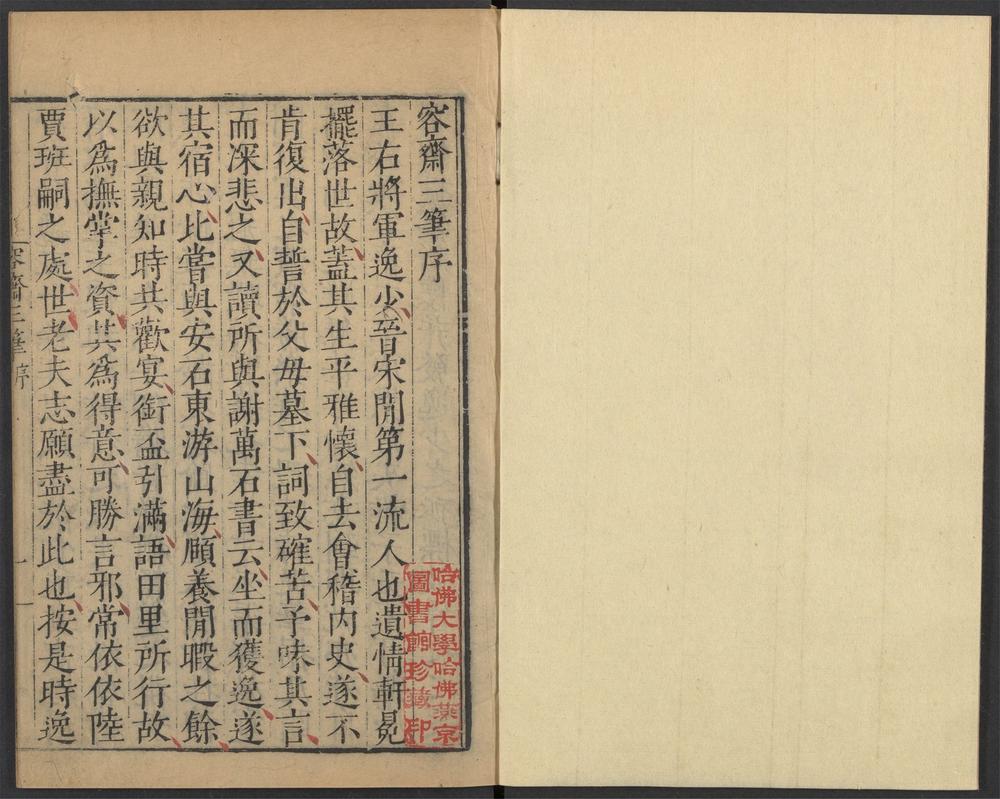 容齋三筆序
王右將軍逸少晉宋間第一流人也遺情軒冕
擺落世故蓋其生平雅懷自去會稽内史遂不
肯復出自誓於父母墓下詞致確苦予味其言
而深悲之又讀所與謝萬石書云坐而獲逸遂
其宿心比嘗與安石東游山海頤養閒暇之餘
欲與親知時共歡宴銜盃引滿語田里所行故
以爲撫掌之資其爲得意可勝言邪常依依陸
賈班嗣之處世老夫志願盡於此也按是時逸
容齋三筆序
一
哈佛大學哈佛燕京
圖書館珍藏印